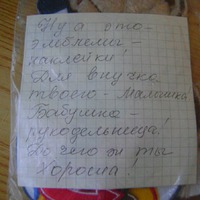 Ну а это-
эмблемы-
наклейки!
Для внучка
твоего - Малашка
Бабушка -
рукодельница!
До чего ж ты
Хороша!